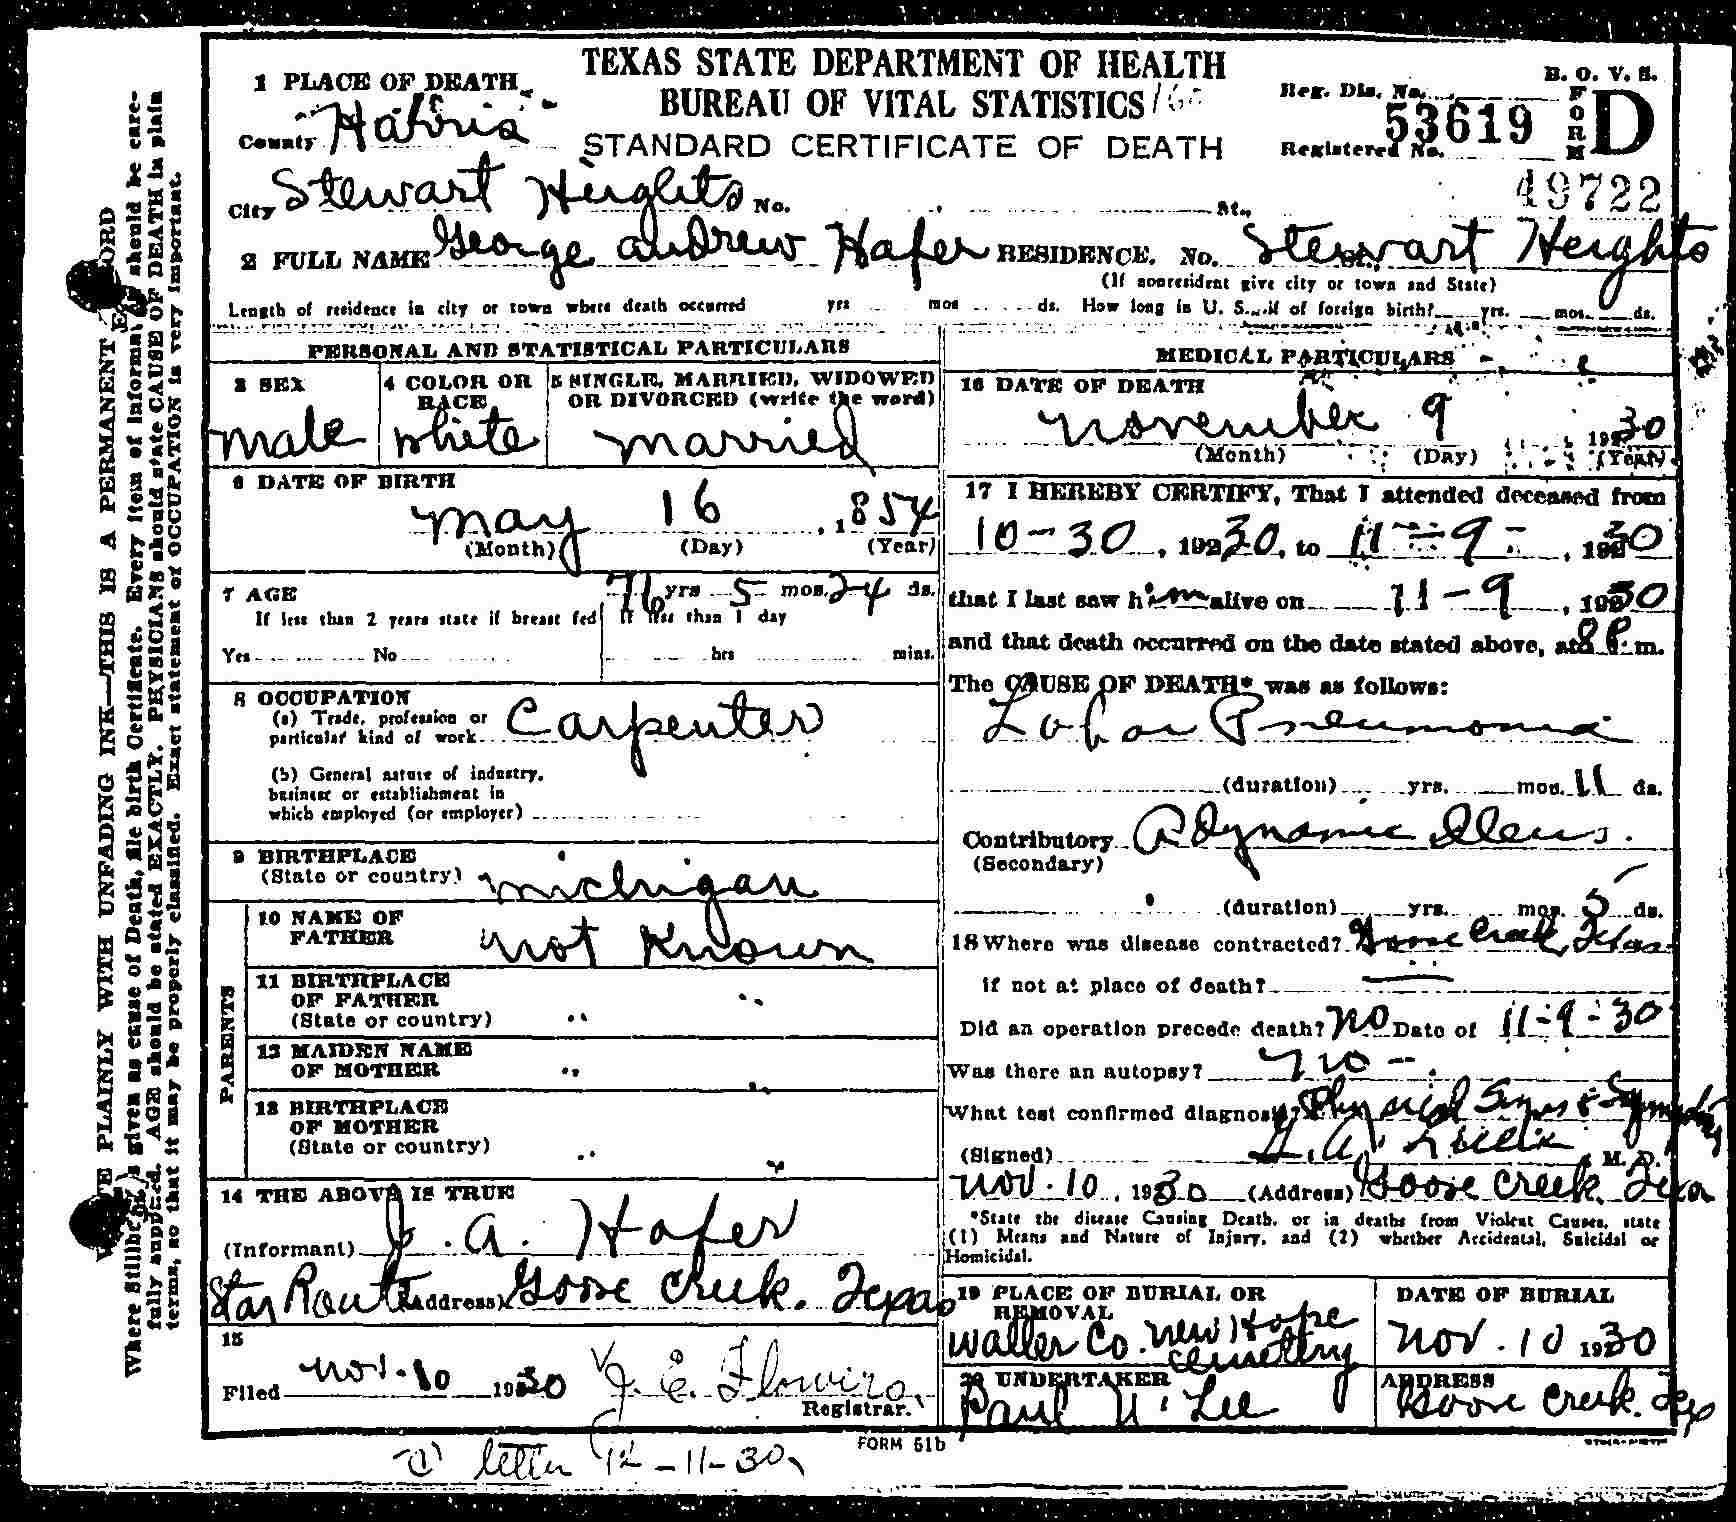 TEXAS STATE DEPARTMENT OF HEALTH
BUREAU OF VITAL STATISTICS
STANDARD CERTIFICATE OF DEATH
B. O. V. S.
FORM D
Reg. Dis. No.
53619
Registered No.
49722
1 PLACE OF DEATH
County Harris
City Stewart Heights No. St.,
2 FULL NAME George Andrew Hafer RESIDENCE. No. Stewart Heights St.,
(If nonresident give city or town and State)
Length of residence in city or town where death occurred yrs mos ds. How long in U. S., if of foreign birth? yrs. mos. ds.
PERSONAL AND STATISTICAL PARTICULARS
3 SEX
male
4 COLOR OR RACE
white
5 SINGLE, MARRIED, WIDOWED OR DIVORCED (write the word)
married
6 DATE OF BIRTH
May 16, 1854
(Month) (Day) (Year)
7 AGE 76 yrs 5 mos. 24 ds.
If less than 2 years state if breast fed
If less than 1 day
Yes No hrs mins.
8 OCCUPATION
(a) Trade, profession or particular kind of work Carpenter
(b) General nature of industry, business or establishment in which employed (or employer)
9 BIRTHPLACE
(State or country) Michigan
PARENTS
10 NAME OF FATHER not Known
11 BIRTHPLACE OF FATHER
(State or country) " "
12 MAIDEN NAME OF MOTHER " "
13 BIRTHPLACE OF MOTHER
(State or country) " "
14 THE ABOVE IS TRUE
(Informant) J. A. Hafer
Star Route (Address) Goose Creek, Texas
15
Filed Nov. 10 1930 J. E. Flowers
Registrar.
MEDICAL PARTICULARS
16 DATE OF DEATH
November 9 1930
(Month) (Day) (Year)
17 I HEREBY CERTIFY, That I attended deceased from
10-30, 1930, to 11-9-, 1930
that I last saw him alive on 11-9, 1930
and that death occurred on the date stated above, at 8 P. m.
The CAUSE OF DEATH* was as follows:
Lobar Pneumonia
(duration) yrs. mos. 11 ds.
Contributory Adynamic Ileus.
(Secondary)
(duration) yrs. mos. 5 ds.
18 Where was disease contracted? Goose Creek, Texas
if not at place of death?
Did an operation precede death? no Date of 11-9-30
Was there an autopsy? no
What test confirmed diagnosis? Physical Signs & Symptoms
(Signed) M. D.
Nov. 10, 1930 (Address) Goose Creek, Texas
*State the disease Causing Death, or in deaths from Violent Causes, state
(1) Means and Nature of Injury, and (2) whether Accidental, Suicidal or
Homicidal.
19 PLACE OF BURIAL OR REMOVAL
Waller Co. New Hope Cemetery
DATE OF BURIAL
Nov. 10 1930
20 UNDERTAKER
Paul U. Lee
ADDRESS
Goose Creek, Tex
FORM 51b
letter 12-11-30
WRITE PLAINLY WITH UNFADING INK—THIS IS A PERMANENT RECORD
Where Stillbirth is given as cause of Death, file birth Certificate. Every item of information should be care-
fully supplied. AGE should be stated EXACTLY. PHYSICIANS should state CAUSE OF DEATH in plain
terms, so that it may be properly classified. Exact statement of OCCUPATION is very important.